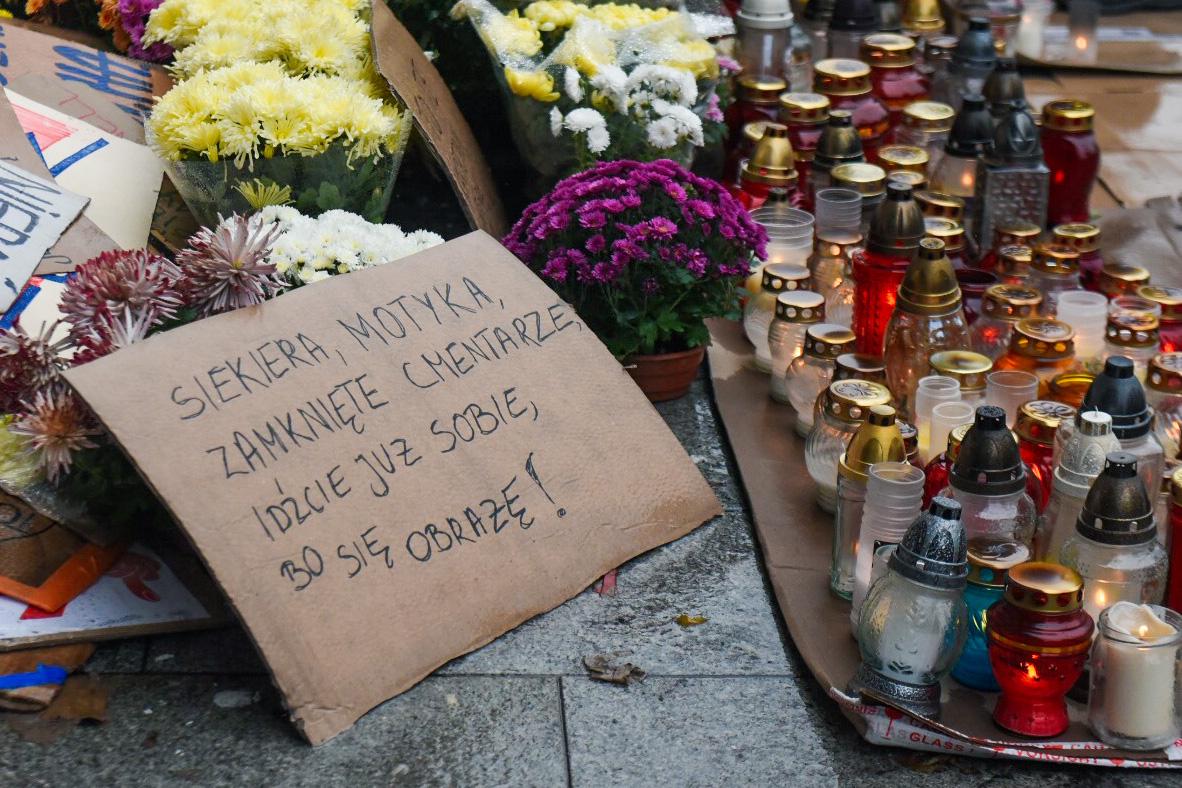 SIEKIERA, MOTYKA,
ZAMKNIĘTE CMENTARZE,
IDŹCIE JUŻ SOBIE,
BO SIĘ OBRAŻĘ!
GLASS